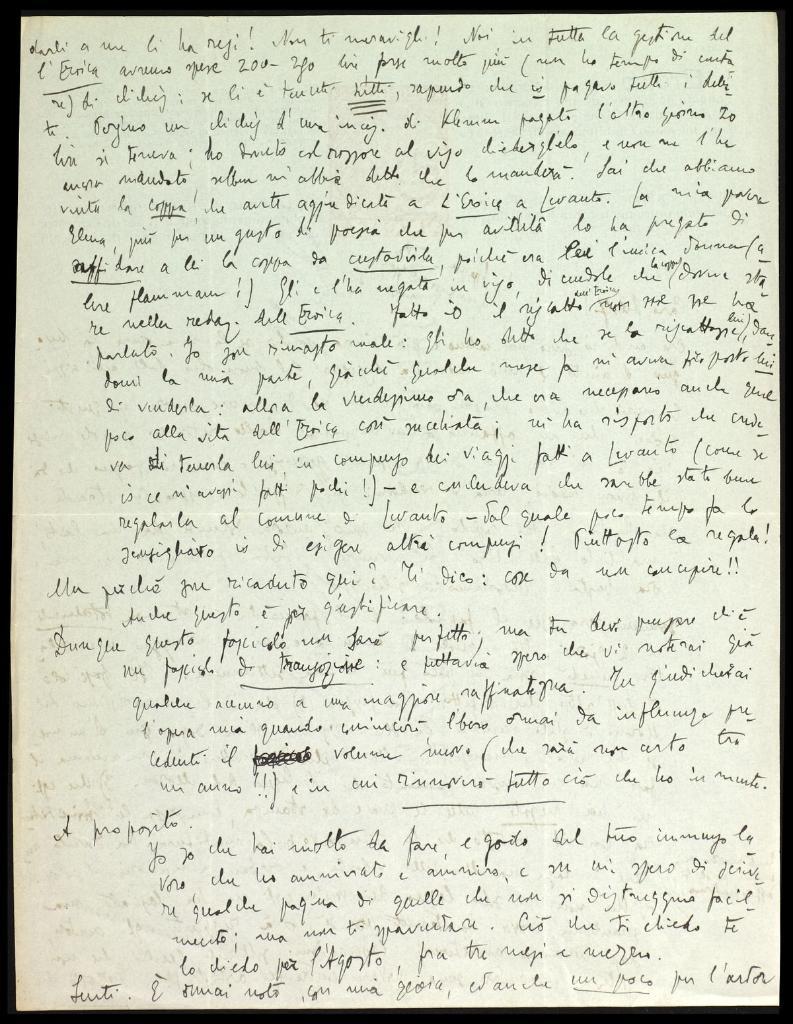 darli a me li ha resi! Non ti meravigli! Noi in tutta la gestione del
l'Eroica avremo spese 200-250 lire forse molto più (non ho tempo di conta
re) di clichés: se li è tenuti tutti, sapendo che io pagavo tutti i debi-
ti. Persino un clichés d'una incis. di Klemm pagato l'altro giorno 20
lire si teneva; ho dovuto col rossore al viso chiederglielo, e non me l'ha
ancora mandato sebben mi abbia detto che lo manderà. Sai che abbiamo
vinta la coppa che avete aggiudicata a L'Eroica a Levanto. La mia povera
Elena, più per un gusto di poesia che per avidità lo ha pregato di
affidare a lei la coppa da custodirla, poiché era lei l'unica donna (a
lere flammam!) Gli e l'ha negata in viso, dicendole che (la coppa) doveva sta-
re nella redaz. dell'Eroica. Fatto io il riscatto dell'Eroica non se ne ha
parlato. Io son rimasto male: gli ho detto che se la riscattasse lui, dan-
domi la mia parte, giacché qualche mese fa mi aveva proposto lui
di venderla: allora la vendessimo ora, che era necessario anche quel
poco alla vita dell'Eroica così succhiata; mi ha risposto che crede-
va di tenerla lui, in compenso dei viaggi fatti a Levanto (come se
io ce n'avessi fatti pochi!) - e concludeva che sarebbe stato bene
regalarla al comune di Levanto - dal quale poco tempo fa lo
consigliavo io di esigere altri compensi! Piuttosto la regala!
Ma perché son ricaduto qui? Ti dico: cose da non concepire!!
Anche questo è per giustificare.
Dunque questo fascicolo non sarà perfetto; ma tu devi pensare ch'è
un fascicolo di transizione: e tuttavia spero che vi noterai già
qualche accenno a una maggiore raffinatezza. Tu giudicherai
l'opera mia quando comincerà, libero ormai da influenze pre-
cedenti il volume nuovo (che sarà non certo tra
un anno!!) e in cui rinnoverò tutto ciò che ho in mente.
A proposito.
Io so che hai molto da fare e godo del tuo immenso la
voro che ho ammirato e ammiro, e su cui spero di scrive-
re qualche pagina di quelle che non si distruggono facil-
mente; ma non ti spaventare. Ciò che ti chiedo te
lo chiedo per l'Agosto, fra tre mesi e mezzo.
Senti. È ormai noto, con mia gioia, ed anche un poco per l'ardor